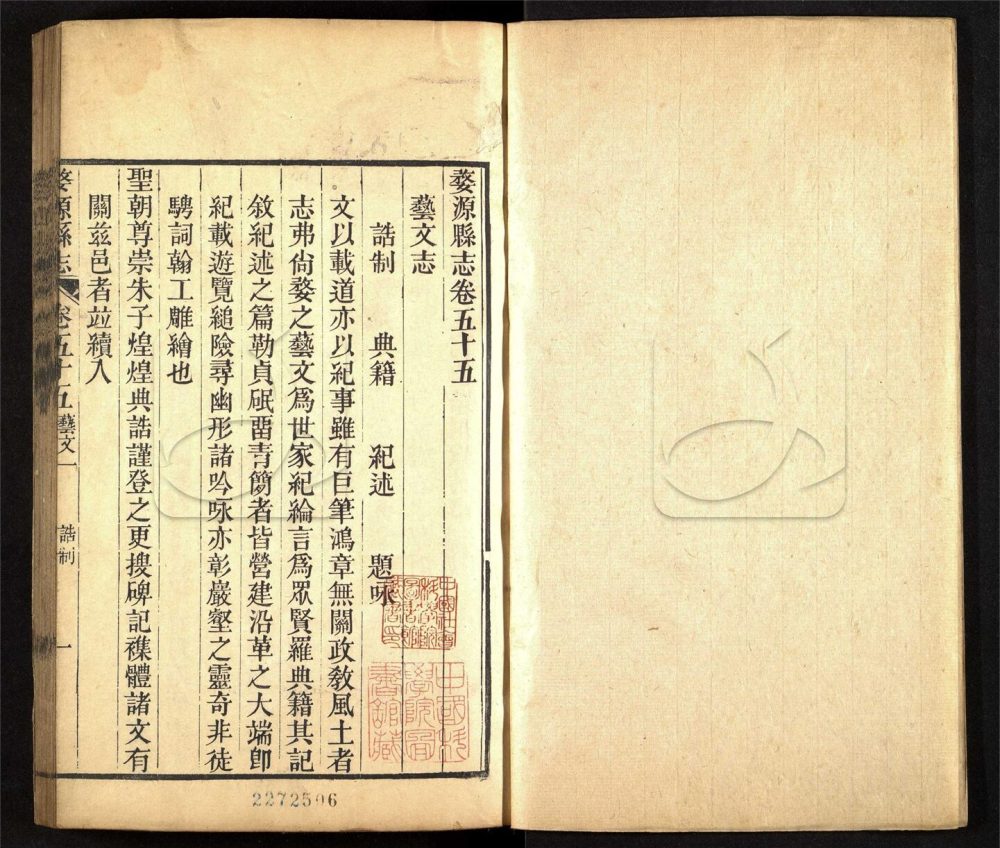 婺源縣志卷五十五
藝文志
誥制　典籍　紀述　題咏
文以載道亦以紀事雖有巨筆鴻章無關政敎風土者
志弗尙婺之藝文爲世家紀綸言爲眾賢羅典籍其記
敘紀述之篇勒貞砥畱靑簡者皆營建沿革之大端卽
紀載遊覽縋險尋幽形諸吟咏亦彰巖壑之靈奇非徒
騁詞翰工雕繪也
聖朝尊崇朱子煌煌典誥謹登之更搜碑記襍體諸文有
關玆邑者竝續入
婺源縣志
卷五十五
藝文一
誥制
一
中國科學院圖書館藏
2272506